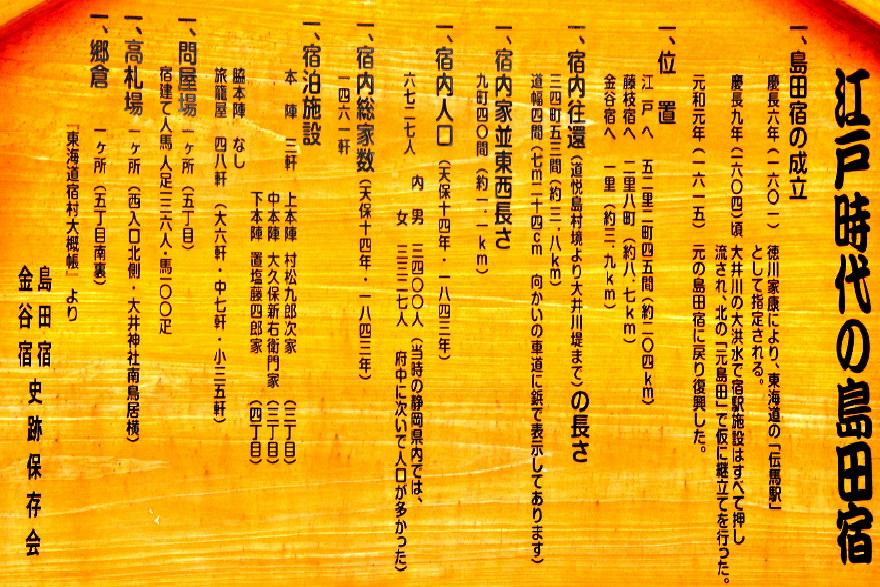 江戸時代の島田宿
一、島田宿の成立
慶長六年（一六〇一）　徳川家康により、東海道の「伝馬駅」
として指定される。
慶長九年（一六〇四）頃　大井川の大洪水で宿駅施設はすべて押し
流され、北の「元島田」で仮に継立てを行った。
元和元年（一六一五）　元の島田宿に戻り復興した。
一、位　置
江　戸　へ　五二里二町四五間（約二〇四km）
藤枝宿へ　二里八町（約八．七km）
金谷宿へ　一里（約三．九km）
一、宿内往還（道悦島村境より大井川堤まで）の長さ
三四町五三間（約三．八km）
道幅四間（七m二十四cm　向かいの車道に鋲で表示してあります）
一、宿内家並東西長さ
九町四〇間（約一．一km）
一、宿内人口（天保十四年・一八四三年）
六七二七人　内　男　三四〇〇人（当時の静岡県内では、
女　三三二七人　府中に次いで人口が多かった）
一、宿内総家数（天保十四年・一八四三年）
一四六一軒
一、宿泊施設
本　陣　三軒　上本陣　村松九郎次家　（三丁目）
中本陣　大久保新右衛門家　（三丁目）
下本陣　置塩藤四郎家　（四丁目）
脇本陣　なし
旅籠屋　四八軒　（大六軒・中七軒・小三五軒）
一、問屋場　一ヶ所（五丁目）
宿建て人馬　人足一三六人・馬一〇〇疋
一、高札場　一ヶ所（西入口北側・大井神社南鳥居横）
一、郷倉　一ヶ所（五丁目南裏）
『東海道宿村大概帳』より
島田宿
金谷宿　史跡保存会